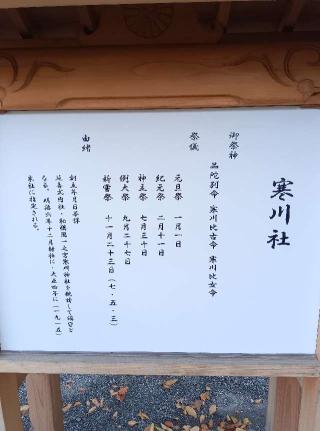 寒川社
御祭神
品陀別命 寒川比古命 寒川比女命
祭儀
元旦祭 一月一日
紀元祭 二月十一日
神玉祭 七月三十日
例大祭 九月二十七日
新嘗祭 十一月二十三日（七・五・三）
由緒
創立年月日不詳
延喜式内社・相模国一之宮寒川神社を勧請して鎮守と
なる。明治六年十二月村社に・大正四年に（一九一五）
社に指定される。